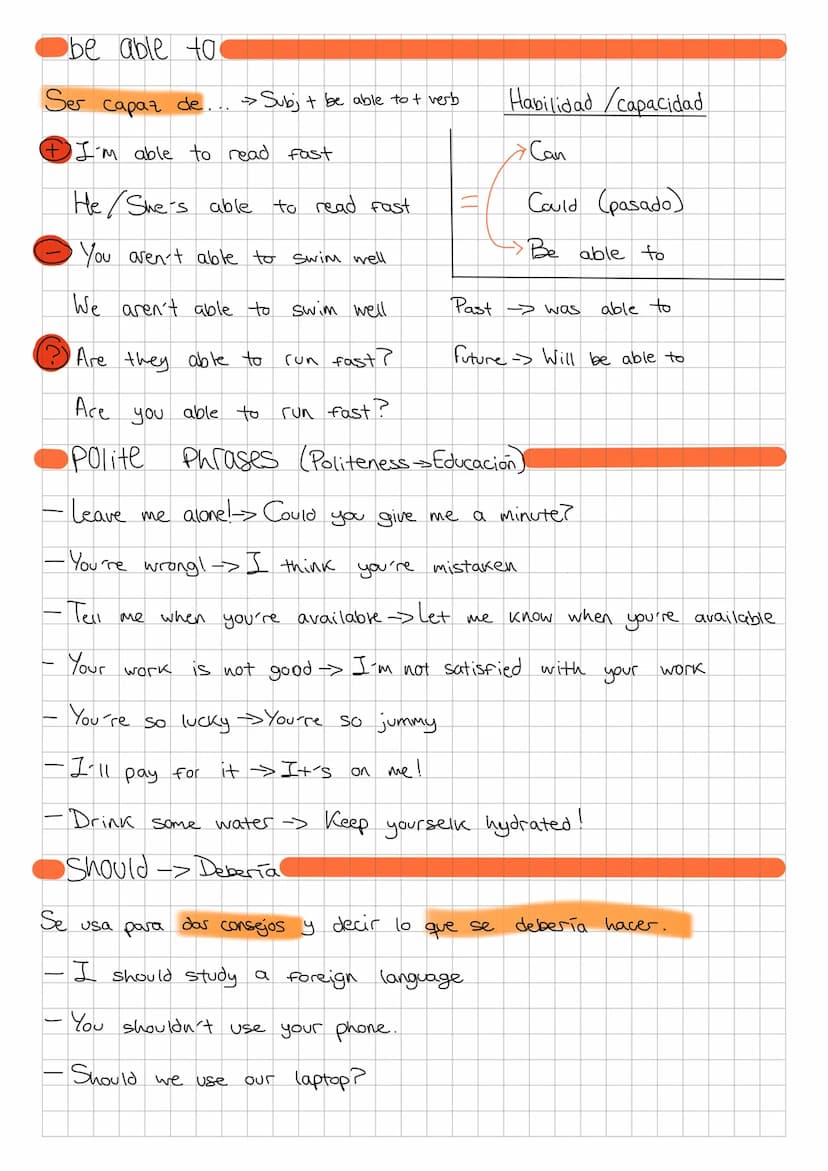 be able to
Ser capaz de... -> Subj + be able to + verb
Habilidad /capacidad
+ I'm able to read fast
He/She's able to read fast
- You aren't able to swim well
We aren't able to swim well
? Are they able to run fast?
Are you able to run fast?
= Can
Could (pasado)
Be able to
Past -> was able to
Future -> Will be able to
Polite Phrases (Politeness->Educación)
- Leave me alone!-> Could you give me a minute?
- You're wrong! -> I think you're mistaken
- Tell me when you're available -> Let me know when you're available
- Your work is not good -> I'm not satisfied with your work
- You're so lucky -> You're so jummy
- I'll pay for it -> It's on me!
- Drink some water -> Keep yourselk hydrated!
Should -> Debería
Se usa para das consejos y decir lo que se debería hacer.
- I should study a foreign language
- You shouldn't use your phone.
- Should we use our laptop?